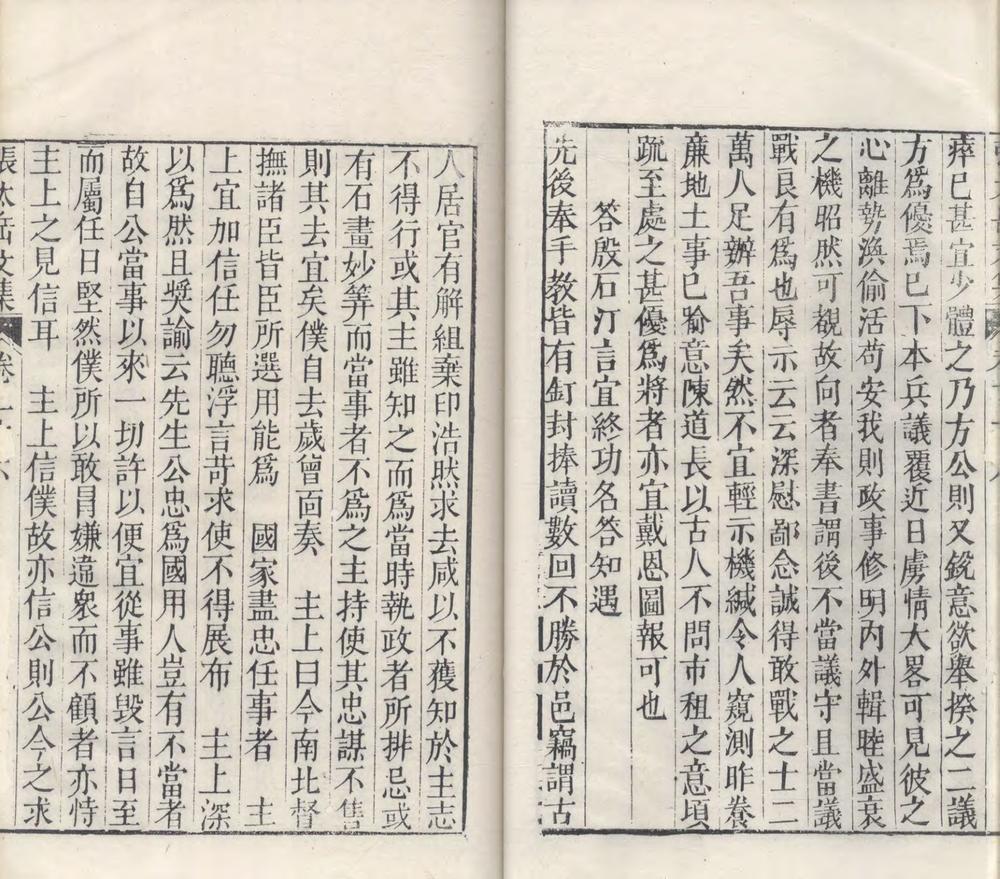 瘁已甚宜少體之乃方公則又銳意欲舉揆之二議
方為優焉已下本兵議覆近日虜情大畧可見彼之
心離勢渙偷活苟安我則政事修明內外輯睦盛衰
之機昭然可覩故向者奉書謂後不當議守且當議
戰良有為也辱示云云深慰鄙念誠得敢戰之士二
萬人足辦吾事矣然不宜輕示機緘令人窺測昨養
廉地土事已喻意陳道長以古人不問市租之意頃
疏至處之甚優為將者亦宜戴恩圖報可也
答殷石汀言宜終功名答知遇
先後奉手教皆有釘封捧讀數回不勝於邑竊謂古
人居官有解組棄印浩然求去咸以不獲知於主志
不得行或其主雖知之而為當時執政者所排忌或
有石畫妙筭而當事者不為之主持使其忠謀不售
則其去宜矣僕自去歲曾面奏 主上曰今南北督
撫諸臣皆臣所選用能為 國家盡忠任事者 主
上宜加信任勿聽浮言苛求使不得展布 主上深
以爲然且奬諭云先生公忠爲國用人豈有不當者
故自公當事以來一切許以便宜從事雖毀言日至
而屬任日堅然僕所以敢冒嫌違衆而不顧者亦恃
主上之見信耳 主上信僕故亦信公則公今之求
張太岳文集 卷